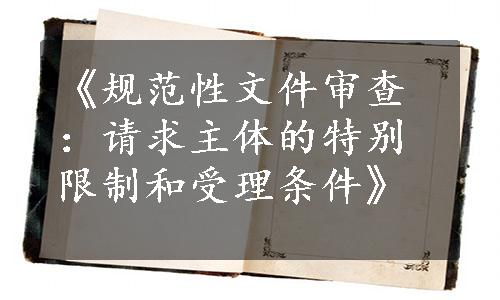 《规范性文件审查
：请求主体的特别
限制和受理条件》